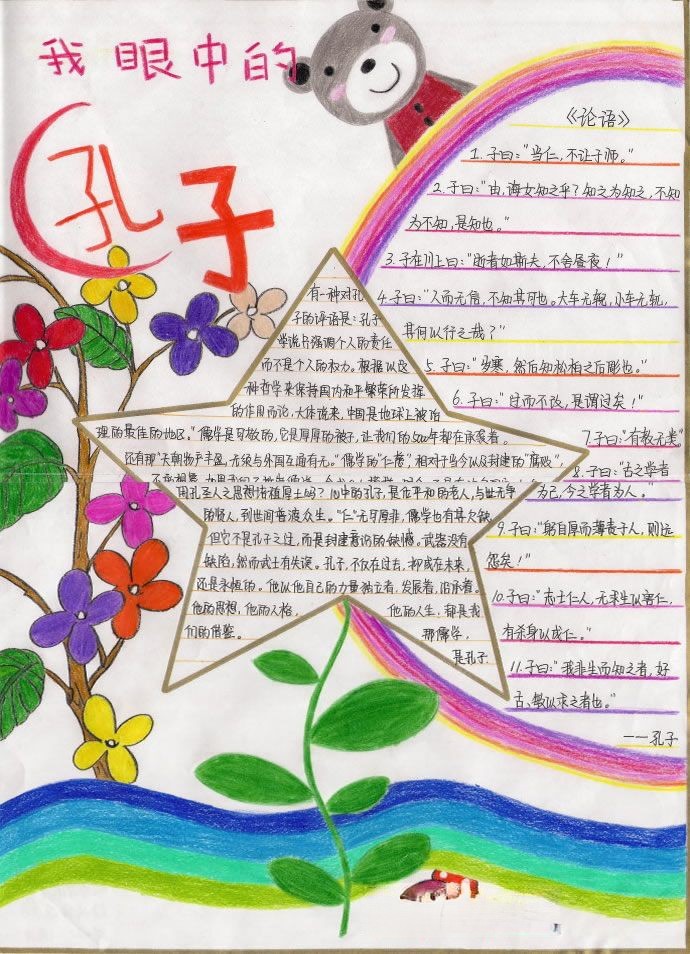 我眼中的
孔子
有一种对孔
子的评语是:孔子
学说只强调个人的责任
而不是个人的权力。根据以
种哲学来保持国内和平繁荣所发挥
的作用而论,大体说来,中国是地球上被治
理的最佳的地区。"儒学是可敬的,它是厚厚的被子,让我们的500年都在承袭着。
还有那"天朝物产丰盛,无须与外国互通有无。"儒学的"仁慈"相对于当今以及封建的"腐败"
用孔圣人思想诸植厚土吗?心中的孔子,是位平和的老人,与世无争
的贤人,到世间普渡众生。"仁"无可厚非,儒学也有其欠缺
但它不是孔子之过,而是封建意识的缺憾。武器没有
缺陷,然而武士有失误。孔子,不仅在过去,抑或在未来,
还是永恒的。他以他自己的力量独立着,发展着,沿承着。
他的思想,他的人格, 他的人生,都是我
们的借鉴。 那儒学,
是孔子
《论语》
1.子曰:"当仁,不让于师。"
2.子曰:"由,诲女知之乎?知之为知之,不知
为不知,是知也。"
3.子在川上曰:"逝者如斯夫,不舍昼夜!"
4.子曰:"人而无信,不知其可也。大车无輗,小车无軏,
其何以行之哉?"
5.子曰:"岁寒,然后知松柏之后彫也。"
6.子曰:"过而不改,是谓过矣!"
7.子曰:"有教无类"
8.子曰:"古之学者
为己,今之学者为人。"
9.子曰:"躬自厚而薄责于人,则远
怨矣!"
10.子曰:"志士仁人,无求生以害仁,
有杀身以成仁。"
11.子曰:"我非生而知之者,好
古、敏以求之者也。"
——孔子